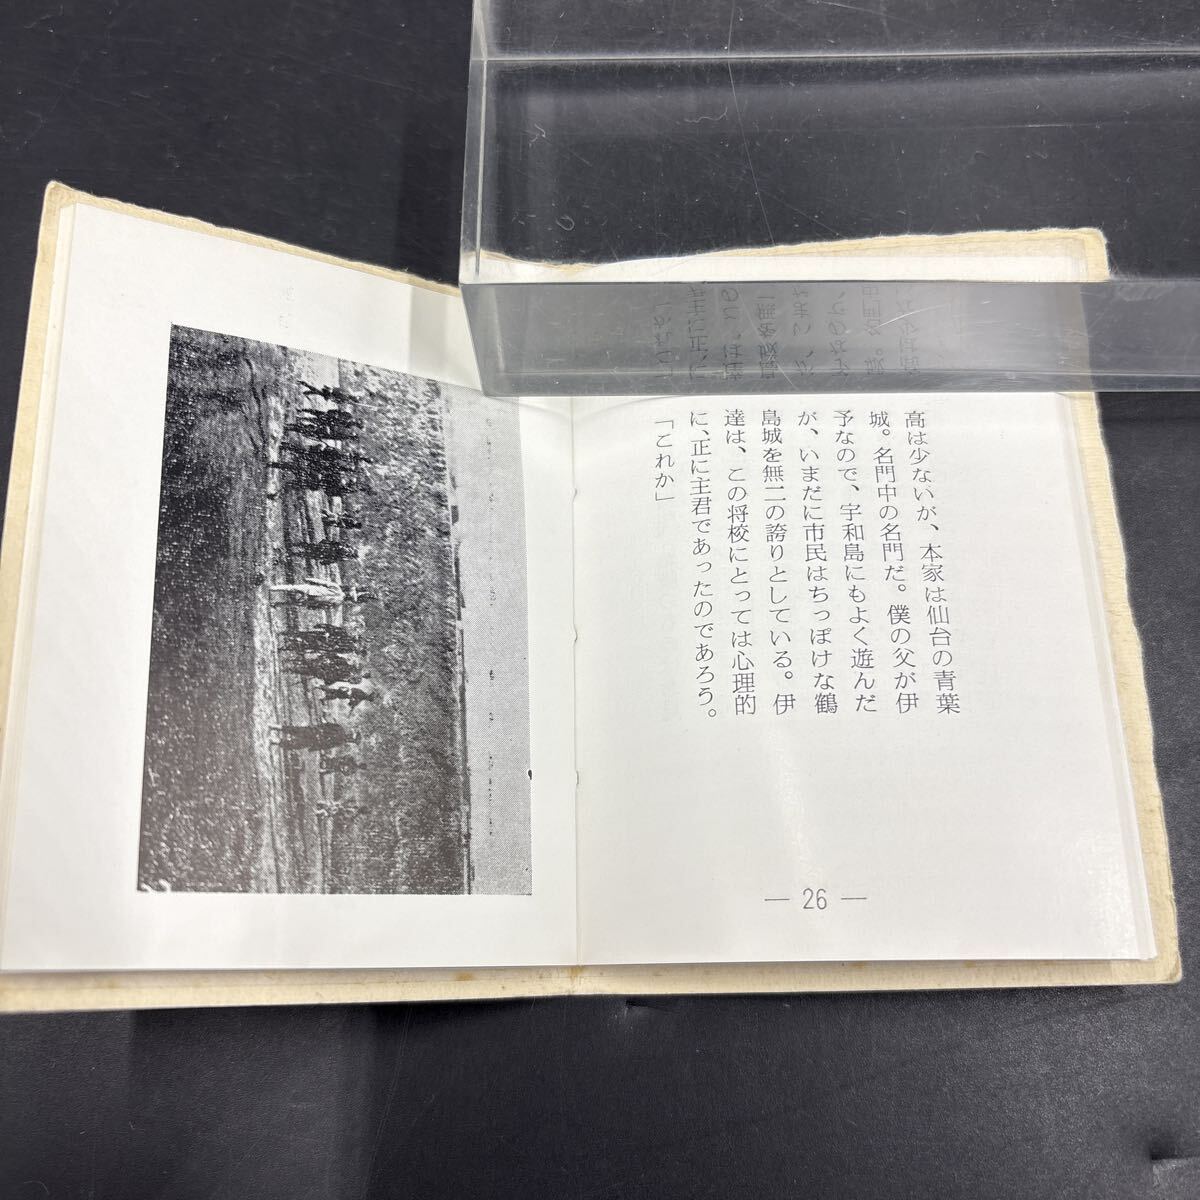 高は少ないが、本家は仙台の青葉
城。名門中の名門だ。僕の父が伊
予なので、宇和島にもよく遊んだ
が、いまだに市民はちっぽけな鶴
島城を無二の誇りとしている。伊
達は、この将校にとっては心理的
に、正に主君であったのであろう。
「これか」
— 26 —